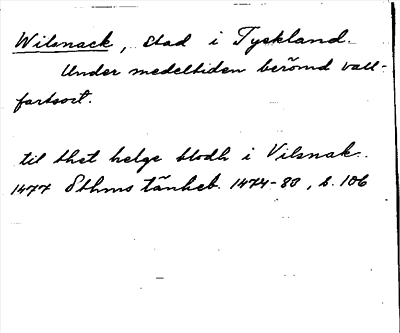 Wilsnack, stad i Tyskland.
Under medeltiden berömd vall-
fartsort.
til thet helge blodh i Vilsnak.
1477 Sthms tänkeb. 1474-80, s. 106